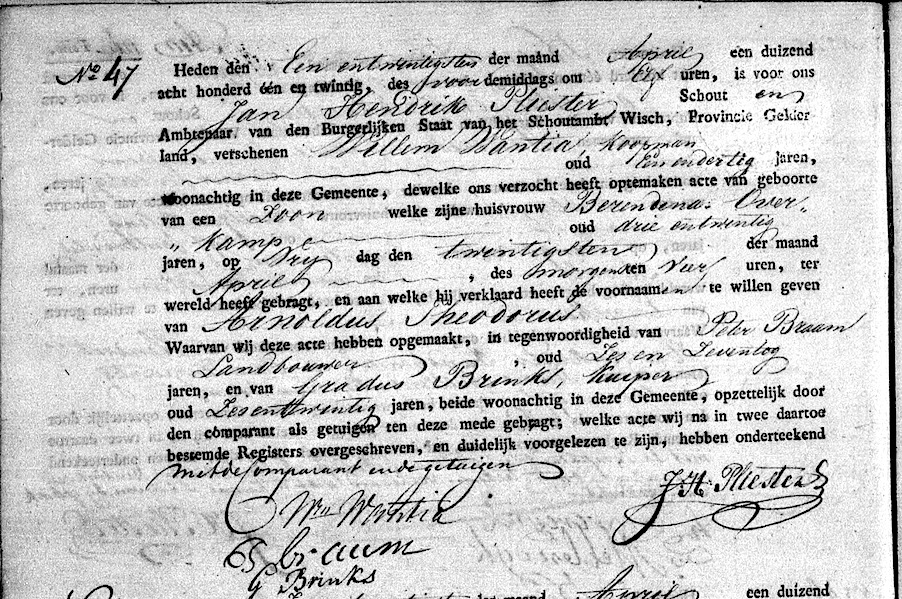 No 47
Heden den Een entwentigsten der maand April een duizend
acht honderd één en twintig, des voor demiddags om uren, is voor ons
Jan Hendrik Pliester Schout en
Ambtenaar van den Burgerlijken Staat van het Schoutambt Wisch, Provincie Gelder
land, verschenen Willem Wantia, Koopman
oud Eenendertig jaren,
woonachtig in deze Gemeente, dewelke ons verzocht heeft optemaken acte van geboorte
van een Zoon welke zijne huisvrouw Berendena Over-
" Kamp oud drie entwentig
jaren, op Vry dag den twentigsten der maand
April , des morgens ten Vier uren, ter
wereld heeft gebragt, en aan welke hij verklaard heeft de voornaamen te willen geven
van Arnoldus Theodorus
Waarvan wij deze acte hebben opgemaakt, in tegenwoordigheid van Peter Braam
Landbouwer , oud Zes en Zeventog
jaren, en van Gradus Brinks, Kuiper
oud Zesentwentig jaren, beide woonachtig in deze Gemeente, opzettelijk door
den comparant als getuigen ten deze mede gebragt; welke acte wij na in twee daartoe
bestemde Registers overgeschreven, en duidelijk voorgelezen te zijn, hebben onderteekend
met de Comparant en de getuigen
J. H. Pliester
Wm Wantia
braam
G Brinks
der maand April een duizend